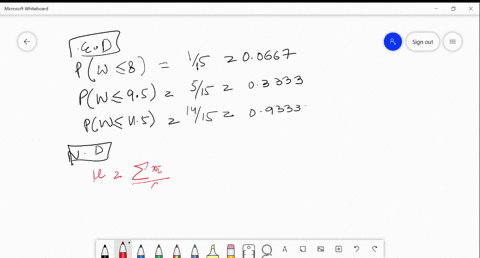 Microsoft Whiteboard
Sign out
E.D
P(W ≤ 8) = 1/15 = 0.0667
P(W ≤ 9.5) = 5/15 = 0.3333
P(W ≤ 11.5) = 14/15 = 0.9333
N.D
μ = Σx